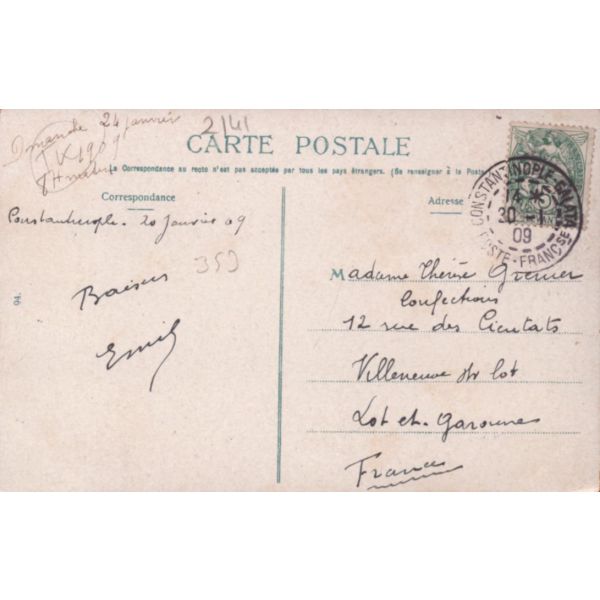 Dimanche 24 janvier
1909
8H matin
2/41
CARTE POSTALE
La Correspondance au recto n'est pas acceptée par tous les pays étrangers. (Se renseigner à la Poste
Correspondance
Adresse
CONSTANTINOPLE-GALATA
30 - 1
09
POSTE-FRANÇSE
Constantinople. 20 Janvier 09
353
Baisers
Emile
94.
Madame Thérèse Grenier
Confections
12 rue des Cieutats
Villeneuve str lot
Lot et. Garonne
France